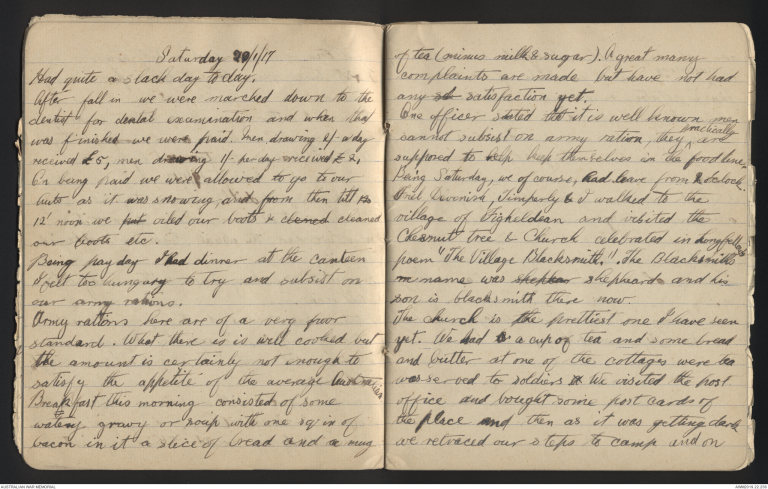 Saturday 20/1/17
Had quite a slack day to day.
After fall in we were marched down to the
dentist for dental examination and when that
was finished we were paid. Men, drawing 2/- a day
received £5, men drawing 1/- per day received £2,
On being paid we were allowed to go to our
huts as it was snowing and from then till 12
12 noon we put oiled our boots & cleaned cleaned
our boots etc.
Being pay day I had dinner at the canteen
I felt too hungury to try and subsist on
our army rations.
Army rations here are of a very poor
standard. What there is is well cooked but
the amount is certainly not enough to
satisfy the appetite of the average Australian
Breakfast this morning consisted of some
watery gravy or soup with one sq in of
bacon in it a slice of bread and a mug
of tea (minus milk & sugar). A great many
complaints are made but have not had
any satisfaction yet.
One officer stated that it is well known men
cannot subsist on army ration, they practically are
supposed to help keep themselves in the food line.
Being Saturday, we of course, had leave from 2 oclock
Neil Devonish, Timperly & I walked to the
village of Figheldean and visited the
Chesnut tree & Church celebrated in Longfellows
poem "The Village Blacksmith". The Blacksmiths
name was shephard and his
son is blacksmith there now.
The church is the prettiest one I have seen
yet. We had a cup of tea and some bread
and butter at one of the cottages were tea
was served to soldiers We visited the post
office and bought some post cards of
the place and then as it was getting dark
we retraced our steps to camp and on
AUSTRALIAN WAR MEMORIAL